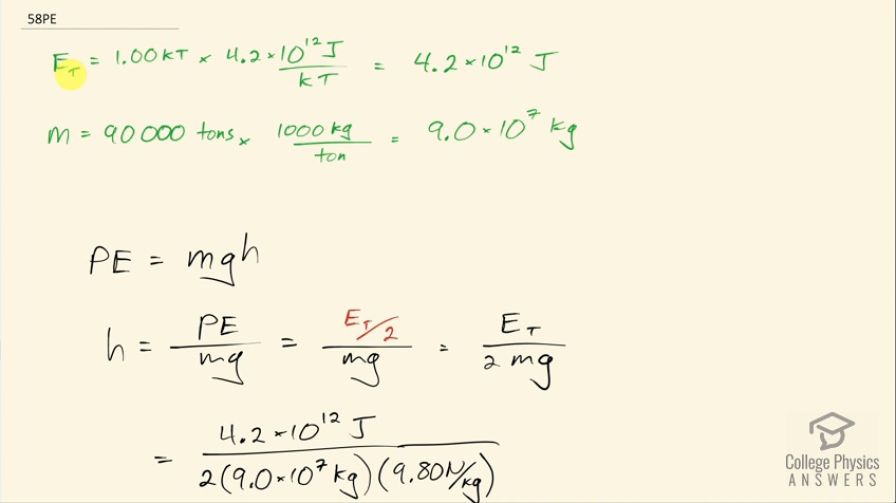 58PE
E_T = 1.00 kT × 4.2×10¹² J / kT = 4.2×10¹² J
m = 90 000 tons × 1000 kg / ton = 9.0×10⁷ kg
PE = mgh
h = PE / mg = E_T/2 / mg = E_T / 2 mg
= 4.2×10¹² J / 2(9.0×10⁷ kg)(9.80 N/kg)
College Physics
ANSWERS